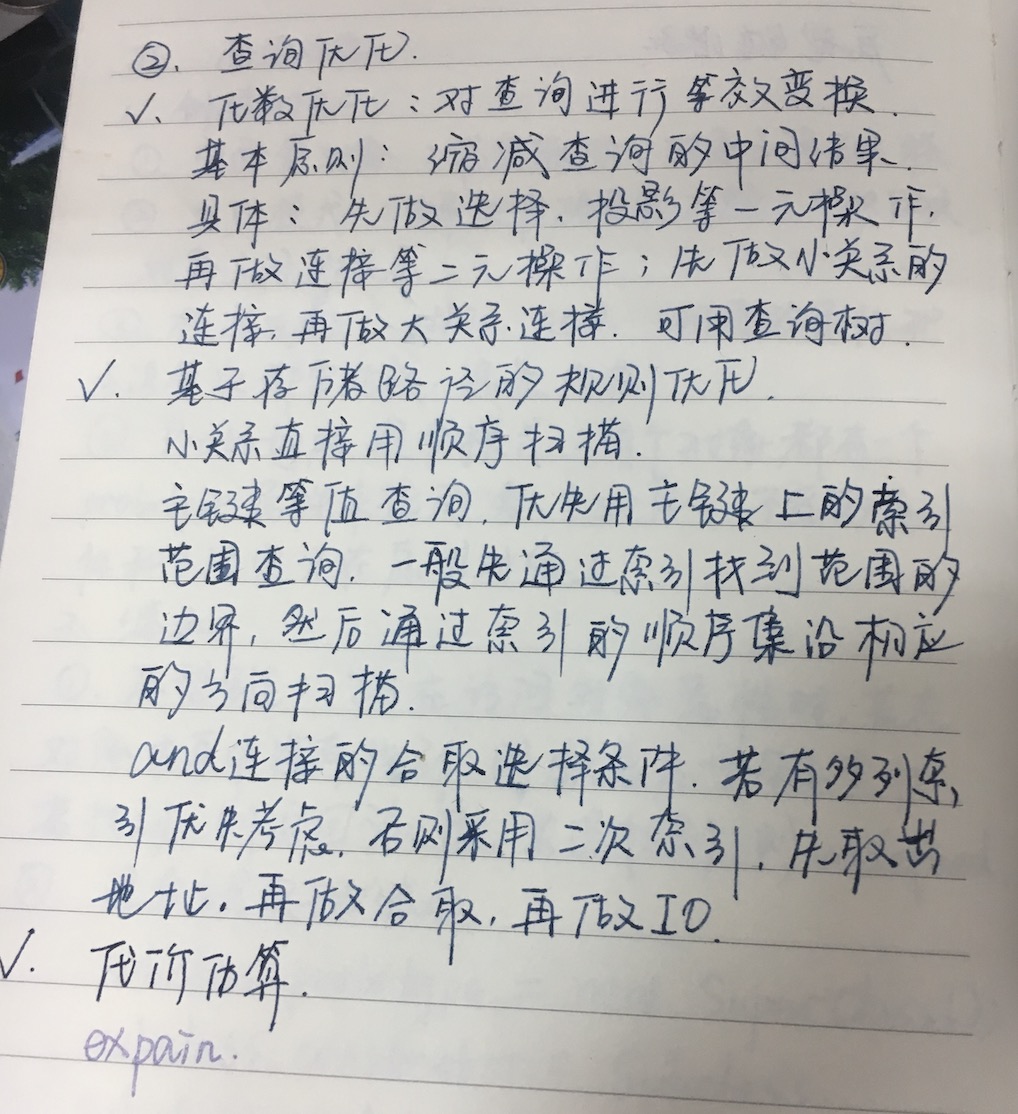 ②. 查询优化.
✓. 代数优化：对查询进行等效变换.
基本原则：缩减查询的中间结果.
具体：先做选择、投影等一元操作,
再做连接等二元操作；先做小关系的
连接,再做大关系连接. 可用查询树.
✓. 基于存储路径的规则优化.
小关系直接用顺序扫描.
主键等值查询,优先用主键上的索引
范围查询,一般先通过索引找到范围的
边界,然后通过索引的顺序集沿相应
的方向扫描.
and连接的合取选择条件.若有多列索
引优先考虑,否则采用二次索引,先取出
地址.再做合取,再做IO.
✓. 代价估算.
expain.